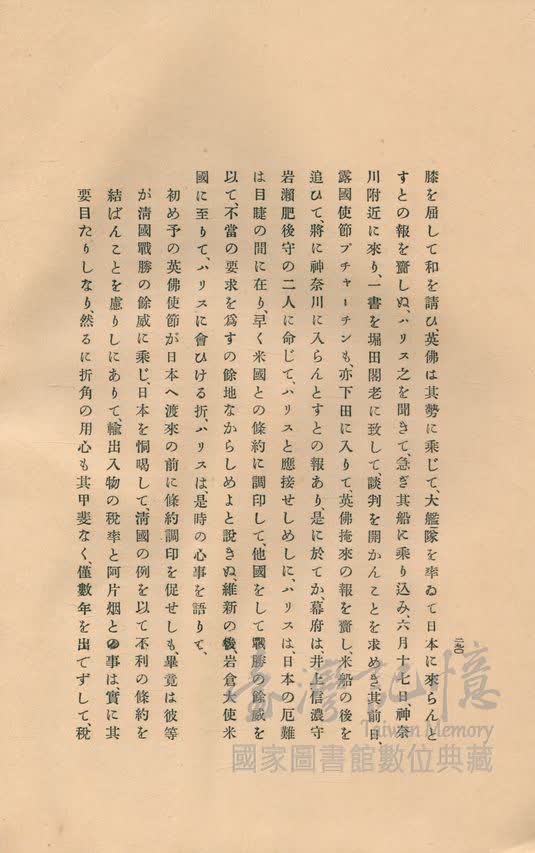 膝を屈して和を請ひ、英佛は其勢に乘じて、大艦隊を率ゐて日本に來らんと
すとの報を齎しぬ、ハリス之を聞きて、急ぎ其船に乘り込み、六月十七日、神奈
川附近に來り、一書を堀田閣老に致して、談判を開かんことを求めき、其前日、
露國使節プチャーチンも、亦下田に入りて、英佛掩來の報を齎し、米船の後を
追ひて、將に神奈川に入らんとすとの報あり、是に於てか、幕府は、井上信濃守
岩瀬肥後守の二人に命じて、ハリスと應接せしめしに、ハリスは、日本の厄難
は目睫の間に在り、早く米國との條約に調印して、他國をして戰勝の餘威を
以て、不當の要求を爲すの餘地なからしめよと說きぬ、維新の後、岩倉大使米
國に至りて、ハリスに會ひける折、ハリスは、是時の心事を語りて、
初め予の英佛使節が日本へ渡來の前に條約調印を促せしも、畢竟は彼等
が淸國戰勝の餘威に乘じ、日本を恫喝して、淸國の例を以て不利の條約を
結ばんことを慮りしにありて、輸出入物の稅率と阿片烟との事は實に其
要目たりしなり、然るに折角の用心も其甲斐なく、僅數年を出でずして、稅
臺灣記憶
Taiwan Memory
國家圖書館數位典藏